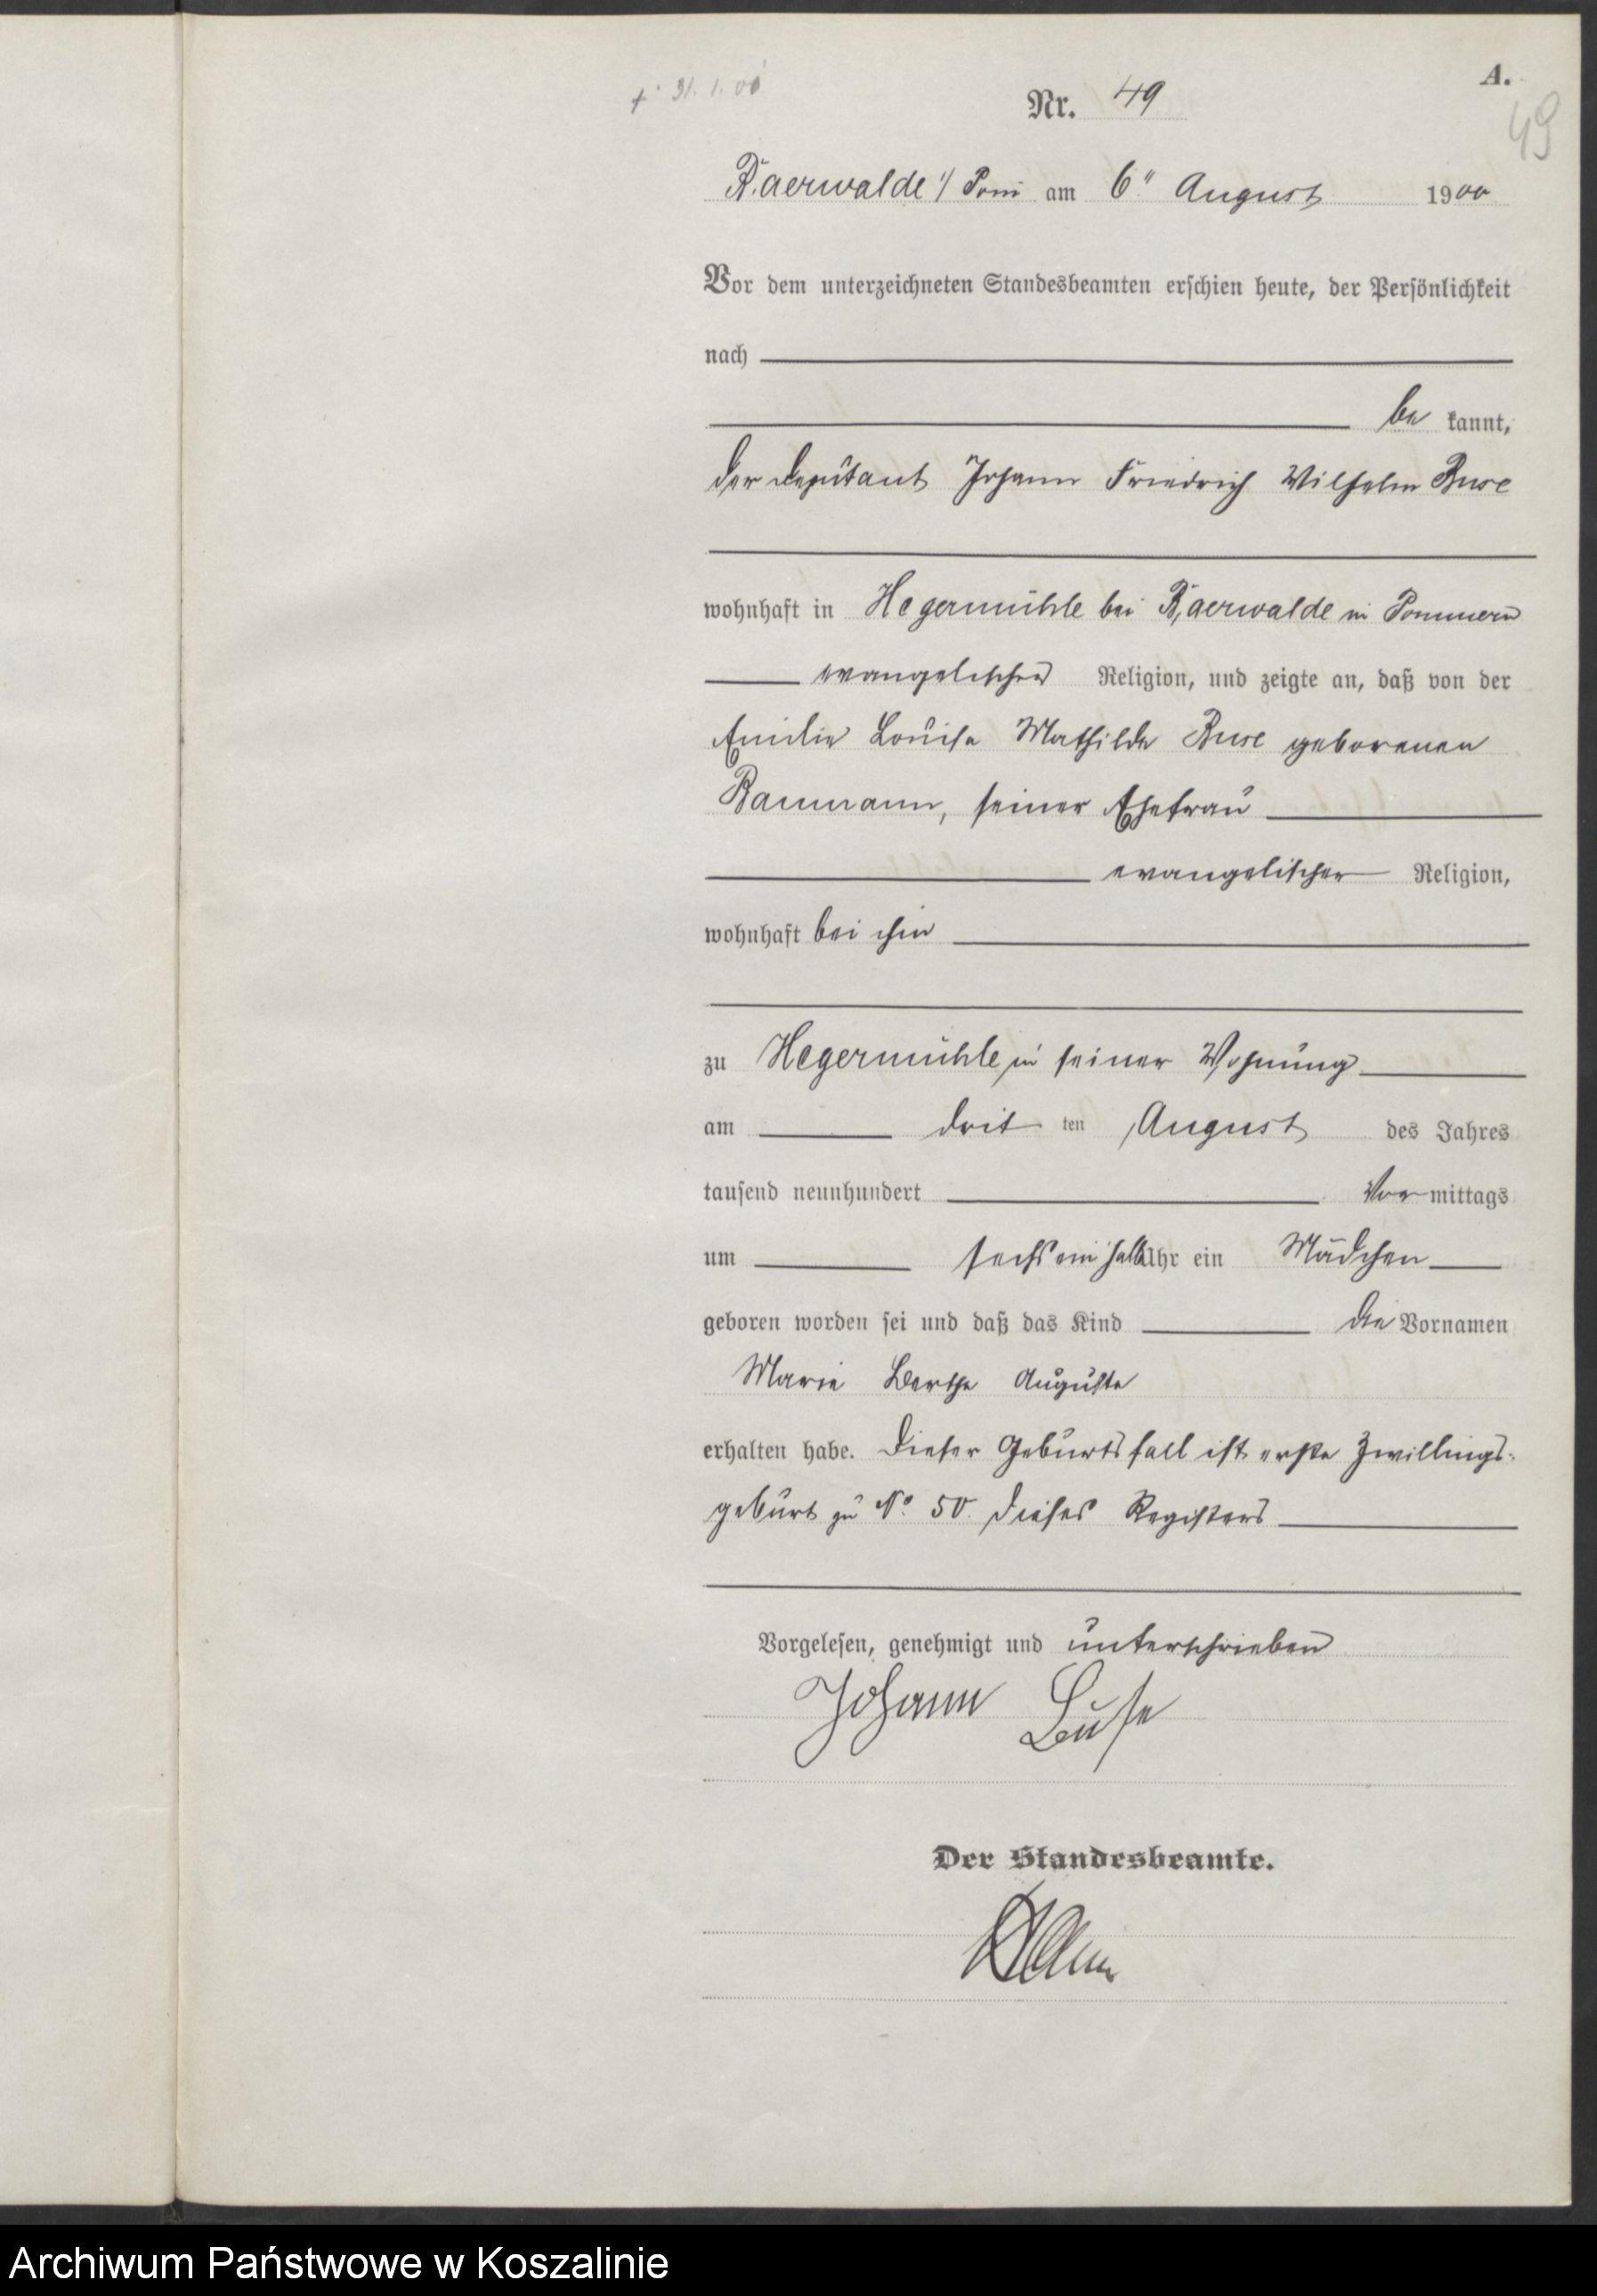 A.
Nr. 49
49
Baerwalde i/ Pom am 6ten August 1900
Vor dem unterzeichneten Standesbeamten erschien heute, der Persönlichkeit
nach
be kannt,
der Deputant Johann Friedrich Wilhelm Buse
wohnhaft in Hegermühle bei Baerwalde in Pommern
evangelischer Religion, und zeigte an, daß von der
Emilie Louise Mathilde Buse geborenen
Baumann, seiner Ehefrau
evangelischer Religion,
wohnhaft bei ihm
zu Hegermühle, in seiner Wohnung
am drit ten August des Jahres
tausend neunhundert Vor mittags
um sechseinhalb Uhr ein Mädchen
geboren worden sei und daß das Kind die Vornamen
Marie Berthe Auguste
erhalten habe. Dieser Geburtsfall ist erste Zwillings-
geburt zu No. 50 dieses Registers
Vorgelesen, genehmigt und unterschrieben
Johann Buse
Der Standesbeamte.
Archiwum Państwowe w Koszalinie